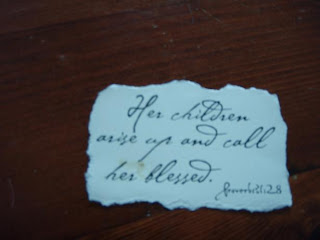 Her children
arise up and call
her blessed.
Proverbs 31:28